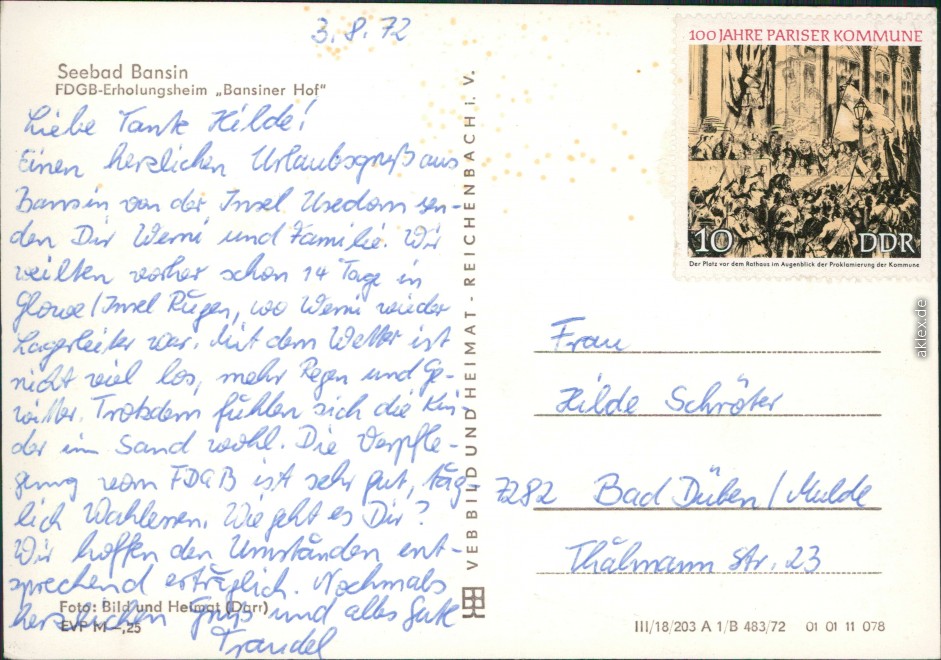 3.8.72
Seebad Bansin
FDGB-Erholungsheim „Bansiner Hof"
Liebe Tante Hilde!
Einen herzlichen Urlaubsgruß aus
Bansin von der Insel Usedom sen-
den Dir Werni und Familie. Wir
weilten vorher schon 14 Tage in
Glowe/Insel Rügen, wo Werni wieder
Lagerleiter war. Mit dem Wetter ist
nicht viel los, mehr Regen und Ge-
witter. Trotzdem fühlen sich die Kin
der im Sand wohl. Die Verpfle-
gung vom FDGB ist sehr gut, täg-
lich Wahlessen. Wie geht es Dir?
Wir hoffen den Umständen ent-
sprechend erträglich. Nochmals
herzlichen Gruß und alles Gute
Traudel
Foto: Bild und Heimat (Darr)
EVP M -,25
VEB BILD UND HEIMAT · REICHENBACH i. V.
100 JAHRE PARISER KOMMUNE
10 DDR
Der Platz vor dem Rathaus im Augenblick der Proklamierung der Kommune
Frau
Hilde Schröter
7282 Bad Düben/Mulde
Thälmann Str. 23
III/18/203 A 1/B 483/72 01 01 11 078
aklex.de